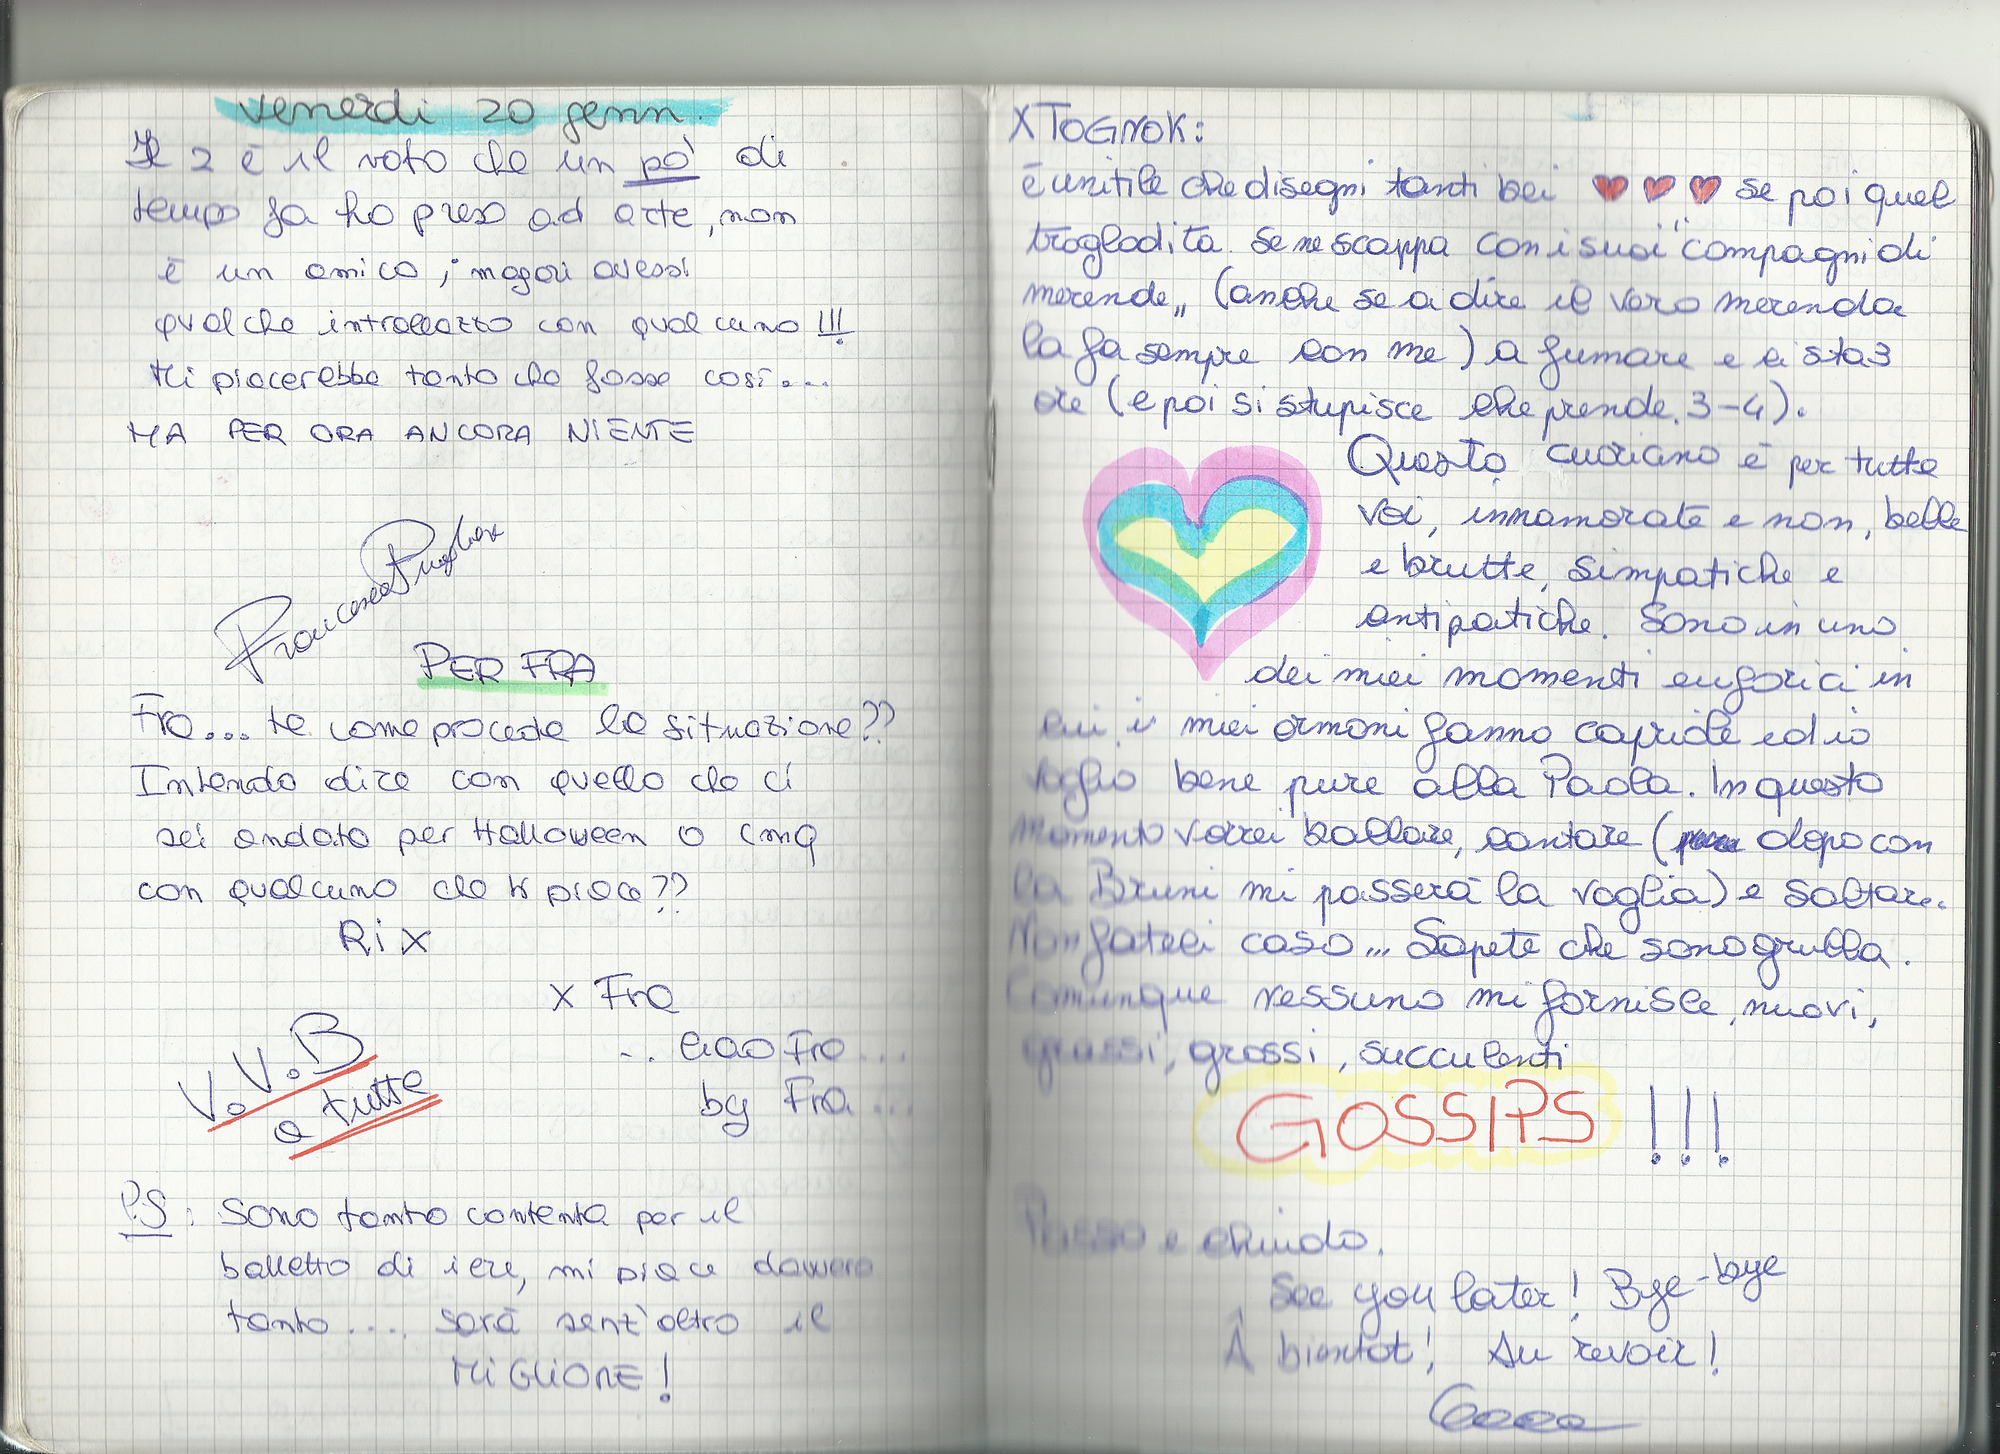 venerdi 20 genn.
Il 2 è il voto che un pò di
tempo fa ho preso ad arte, non
è un amico, magari avessi
qualche intrallazzo con qualcuno !!!
Mi piacerebbe tanto che fosse così...
MA PER ORA ANCORA NIENTE
Francesca Pugliese
PER FRA
Fra... te come procede la situazione??
Intendo dire con quello che ci
sei andata per Halloween o cmq
con qualcuno che ti piace??
Rix
x Fra
... Ciao Fra...
by Fra...
V.V.B
a tutte
P.S: Sono tanto contenta per il
balletto di ieri, mi piace davvero
tanto.... sarà senz'altro il
MIGLIORE!
X TOGNOK:
è inutile che disegni tanti bei ♥ ♥ ♥ se poi quel
troglodita se ne scappa con i suoi "compagni di
merende„ (anche se a dire il vero merenda
la fa sempre con me) a fumare e ci sta 3
ore (e poi si stupisce che prende 3-4).
Questo cuoricino è per tutte
voi, innamorate e non, belle
e brutte, simpatiche e
antipatiche. Sono in uno
dei miei momenti euforici in
cui i miei ormoni fanno capriole ed io
voglio bene pure alla Paola. In questo
momento vorrei ballare, cantare ( dopo con
la Bruni mi passerà la voglia) e saltare.
Non fateci caso... Sapete che sono grulla.
Comunque nessuno mi fornisce, nuovi,
grassi, grossi, succulenti
GOSSIPS !!!
Passo e chiudo.
See you later! Bye-bye
À bientot! Au revoir!